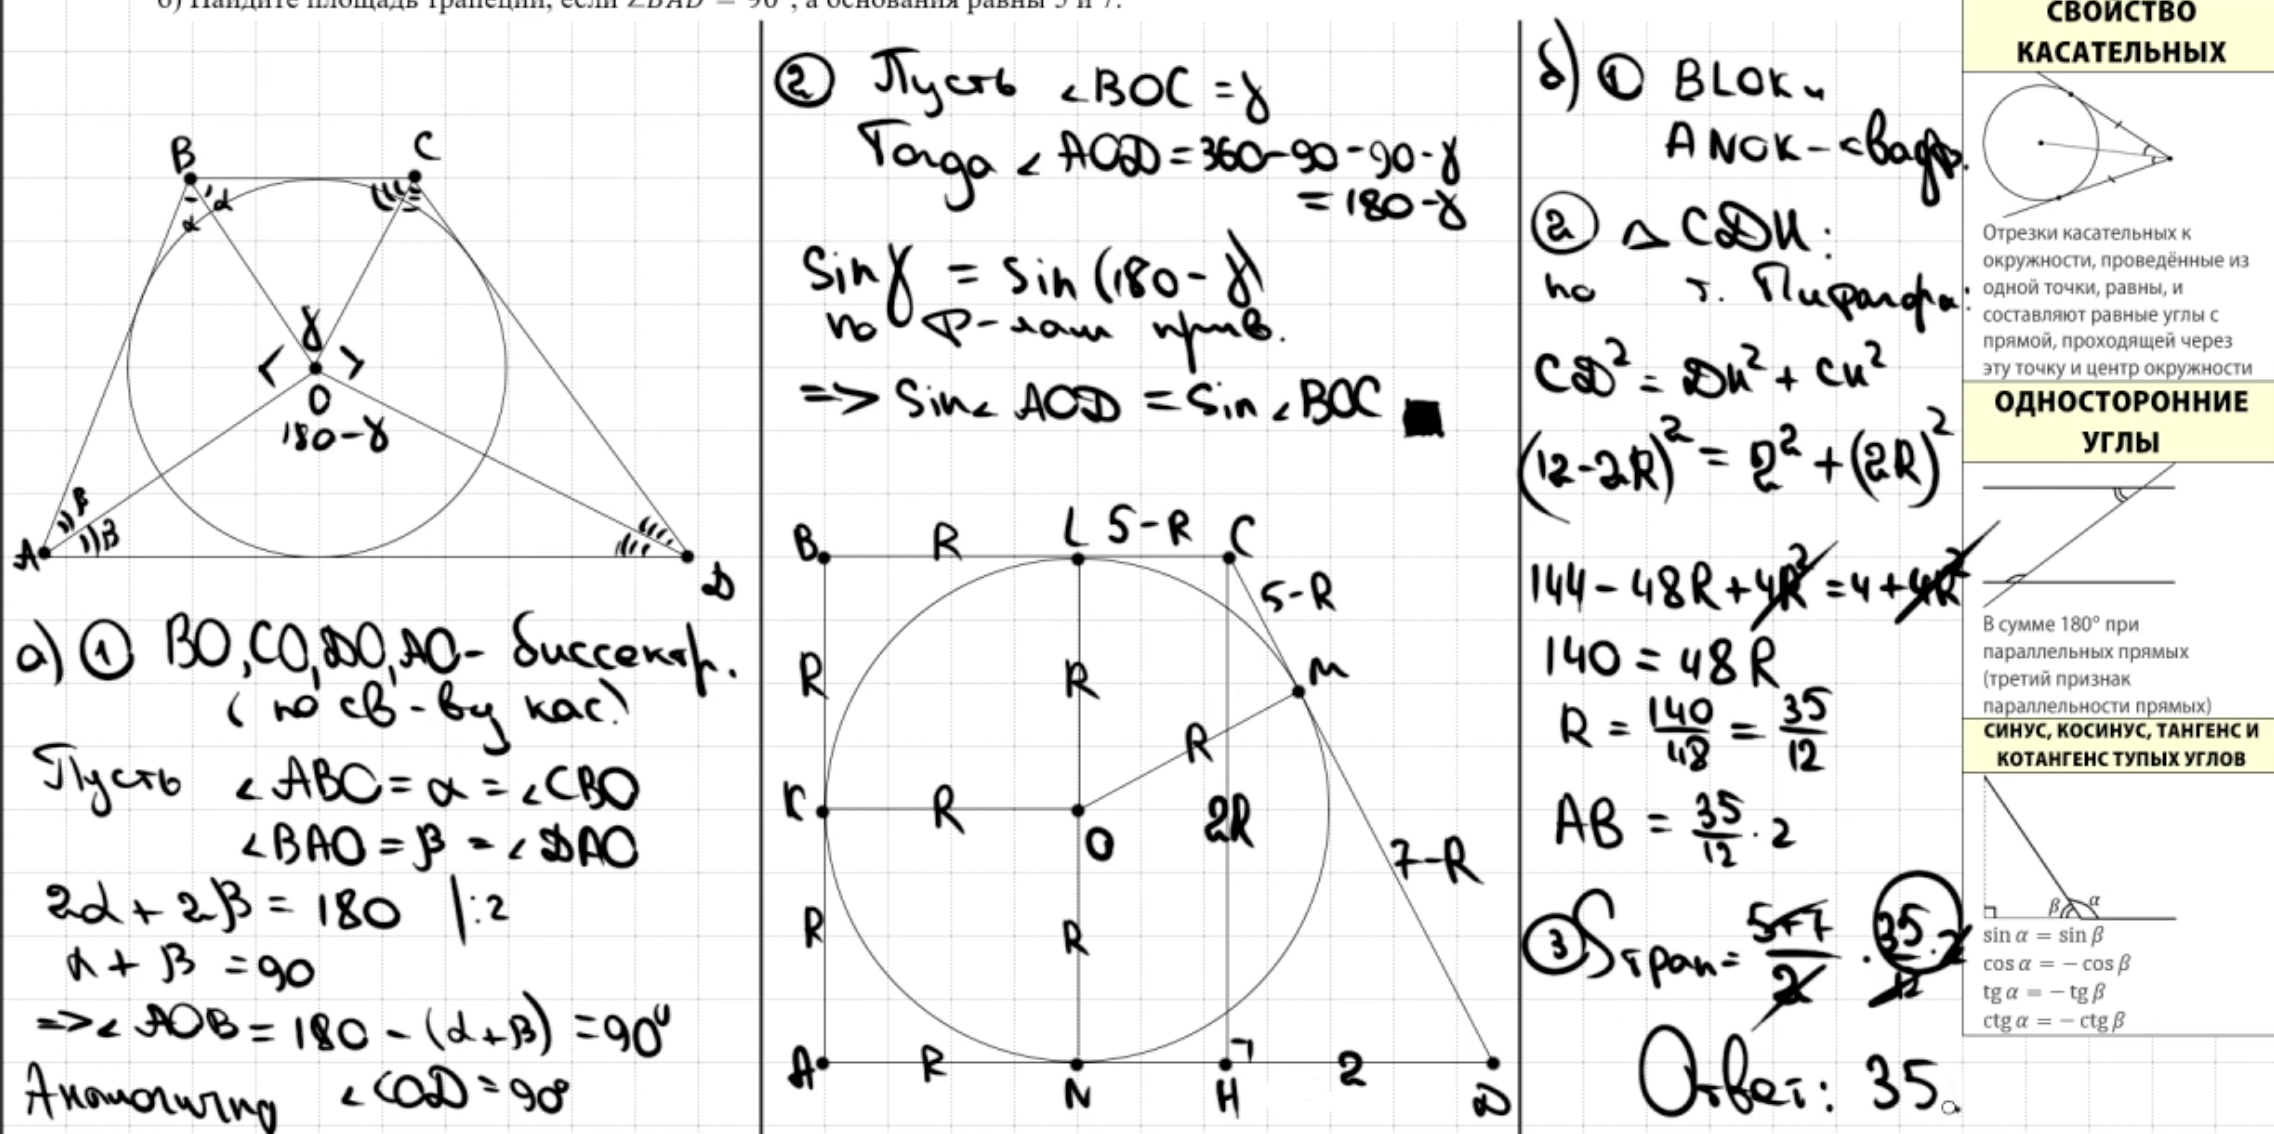 б) Найдите площадь трапеции, если ∠BAD = 90°, а основания равны 5 и 7.
B
C
α
α
γ
O
180-γ
β
β
A
D
а) ① BO, CO, DO, AO - биссектр.
(по св-ву кас.)
Пусть ∠ABO = α = ∠CBO
∠BAO = β = ∠DAO
2α + 2β = 180 |:2
α + β = 90
=> ∠AOB = 180 - (α+β) = 90°
Аналогично ∠COD = 90°
② Пусть ∠BOC = γ
Тогда ∠AOD = 360-90-90-γ
= 180-γ
Sin γ = Sin (180-γ)
по ф-лам прив.
=> Sin∠AOD = Sin∠BOC
B R L 5-R C
5-R
R R M
R
K R O 2R
7-R
R R
A R N H 2 D
б) ① BLOK и
ANOK - квадр.
② △CDH:
по т. Пифагора:
CD² = DH² + CH²
(12-2R)² = 2² + (2R)²
144 - 48R + 4R² = 4 + 4R²
140 = 48R
R = 140/48 = 35/12
AB = 35/12 · 2
③ Sтрап = 5+7/2 · 35/12 · 2
Ответ: 35.
СВОЙСТВО
КАСАТЕЛЬНЫХ
Отрезки касательных к
окружности, проведённые из
одной точки, равны, и
составляют равные углы с
прямой, проходящей через
эту точку и центр окружности
ОДНОСТОРОННИЕ
УГЛЫ
В сумме 180° при
параллельных прямых
(третий признак
параллельности прямых)
СИНУС, КОСИНУС, ТАНГЕНС И
КОТАНГЕНС ТУПЫХ УГЛОВ
β α
sin α = sin β
cos α = − cos β
tg α = − tg β
ctg α = − ctg β